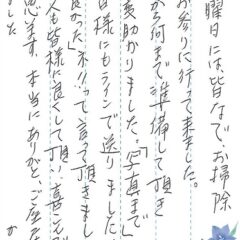 曜日には皆なで、お掃除
お参りに行って来ました。
から何まで準備して頂き
変助かりました。「写真まで」
皆様にもラインで送りました
良かった」ネ!!って言って頂きまし
人も皆様に良くして頂い喜こんで
思ます。本当にありがとうご座居
した